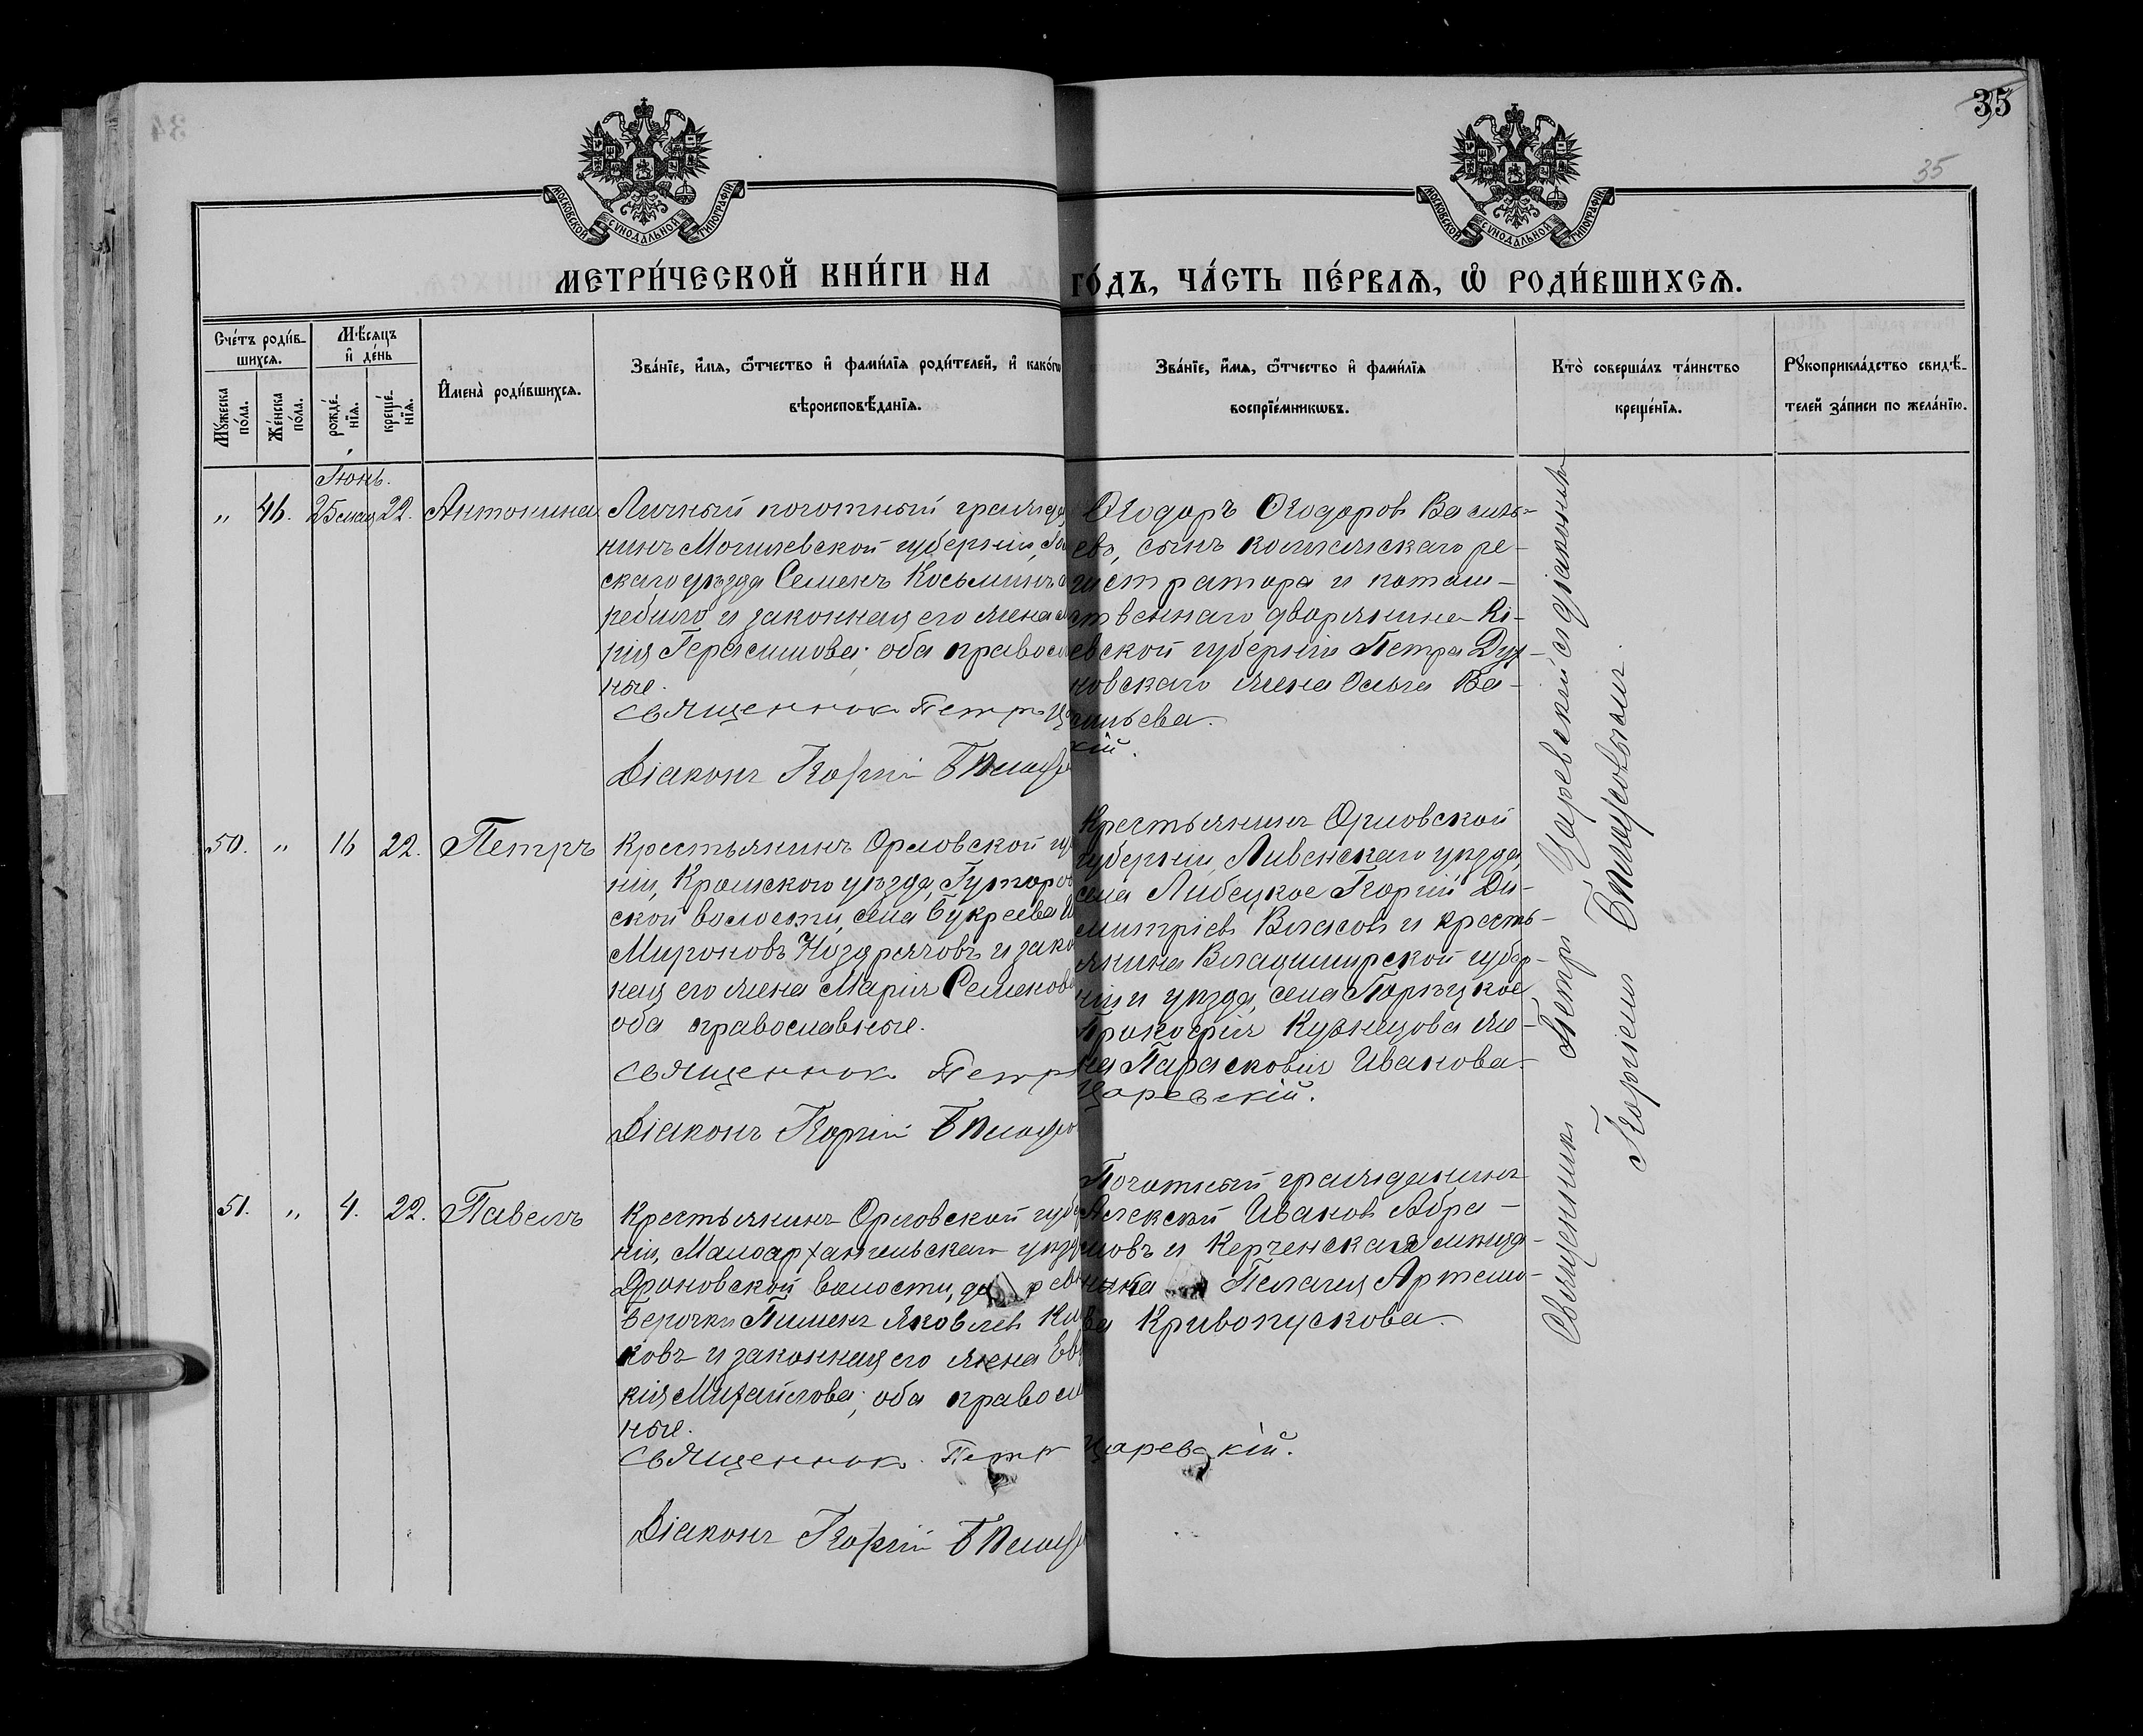 34
35
35
МОСКОВСКОЙ СѴНОДАЛЬНОЙ ТИПОГРАФІИ
МОСКОВСКОЙ СѴНОДАЛЬНОЙ ТИПОГРАФІИ
МЕТРИ́ЧЕСКОЙ КНИ́ГИ НА
ГО́ДЪ, ЧА́СТЬ ПЕ́РВАѦ, Ѡ РОДИ́ВШИХСѦ.
Сче́тъ роди́в-
шихсѧ.
Мꙋ́жеска
по́ла.
Же́нска
по́ла.
Мѣ́сѧцъ
и҆ де́нь
рожде́-
нїѧ.
креще́-
нїѧ.
И҆мена̀ роди́вшихсѧ.
Зва́нїе, и҆́мѧ, ѻ҆́тчество и҆ фами́лїѧ роди́телей, и҆ како́гѡ
вѣроисповѣ́данїѧ.
Зва́нїе, и҆́мѧ, ѻ҆́тчество и҆ фами́лїѧ
воспрїе́мникѡвъ.
Кто̀ соверша́лъ та́инство
креще́нїѧ.
Рꙋкоприкла́дство свидѣ́-
телей за́писи по жела́нїю.
Іюнь.
" 46. 25 мая 22. Антонина
Личный почотный гражда
нинъ Могилевской губерніи, Го
скаго уѣзда Семенъ Косьминъ
ребило и законная его жена М
рія Герасимова; оба правосл
ные.
Священник Петръ Ца
Діаконъ Георгій Бѣлоус
Ѳеодоръ Ѳеодоров Василь-
евъ, сынъ коллежскаго ре-
гистратора и потом-
ственнаго дворянина Кі-
евской губерніи Петра Дух-
новскаго жена Ольга Ва-
сильева.
кій.
50. " 16 22. Петръ
Крестьянинъ Орловской гу
ніи, Кромского уѣзда, Гуторов
ской волости, села Букреева И
Мироновъ Ноздрячовъ и зако
ная его жена Марія Семенова
оба православные.
Священник Петр
Діаконъ Георгій Бѣлоусо
Крестьянинъ Орловской
губерніи, Ливенскаго уѣзда,
села Любецкое Георгій Ди-
митріев Власов и кресть-
янина Владимирской губер-
ніи и уѣзда, села Порѣцкое
Прокофія Кузнецова же-
на Парасковія Иванова.
Царевскій.
51. " 4. 22. Павелъ
Крестьянинъ Орловской губе
ніи, Малоархангельскаго уѣзда
Дроновской волости, де ревн
Берочки Пименъ Яковлев Ки
ковъ и законная его жена Ев
кія Михайлова; оба правосл
ные.
Священник Петр
Діаконъ Георгій Бѣлоус
Почотный гражданинъ
Алексѣй Иванов Абра-
мовъ и Керченская мѣща-
нка Пелагея Артемо-
ва Кривопускова.
Царевскій.
Священник Петр Царевскій с діакономъ
Георгіемъ Бѣлоусовымъ.